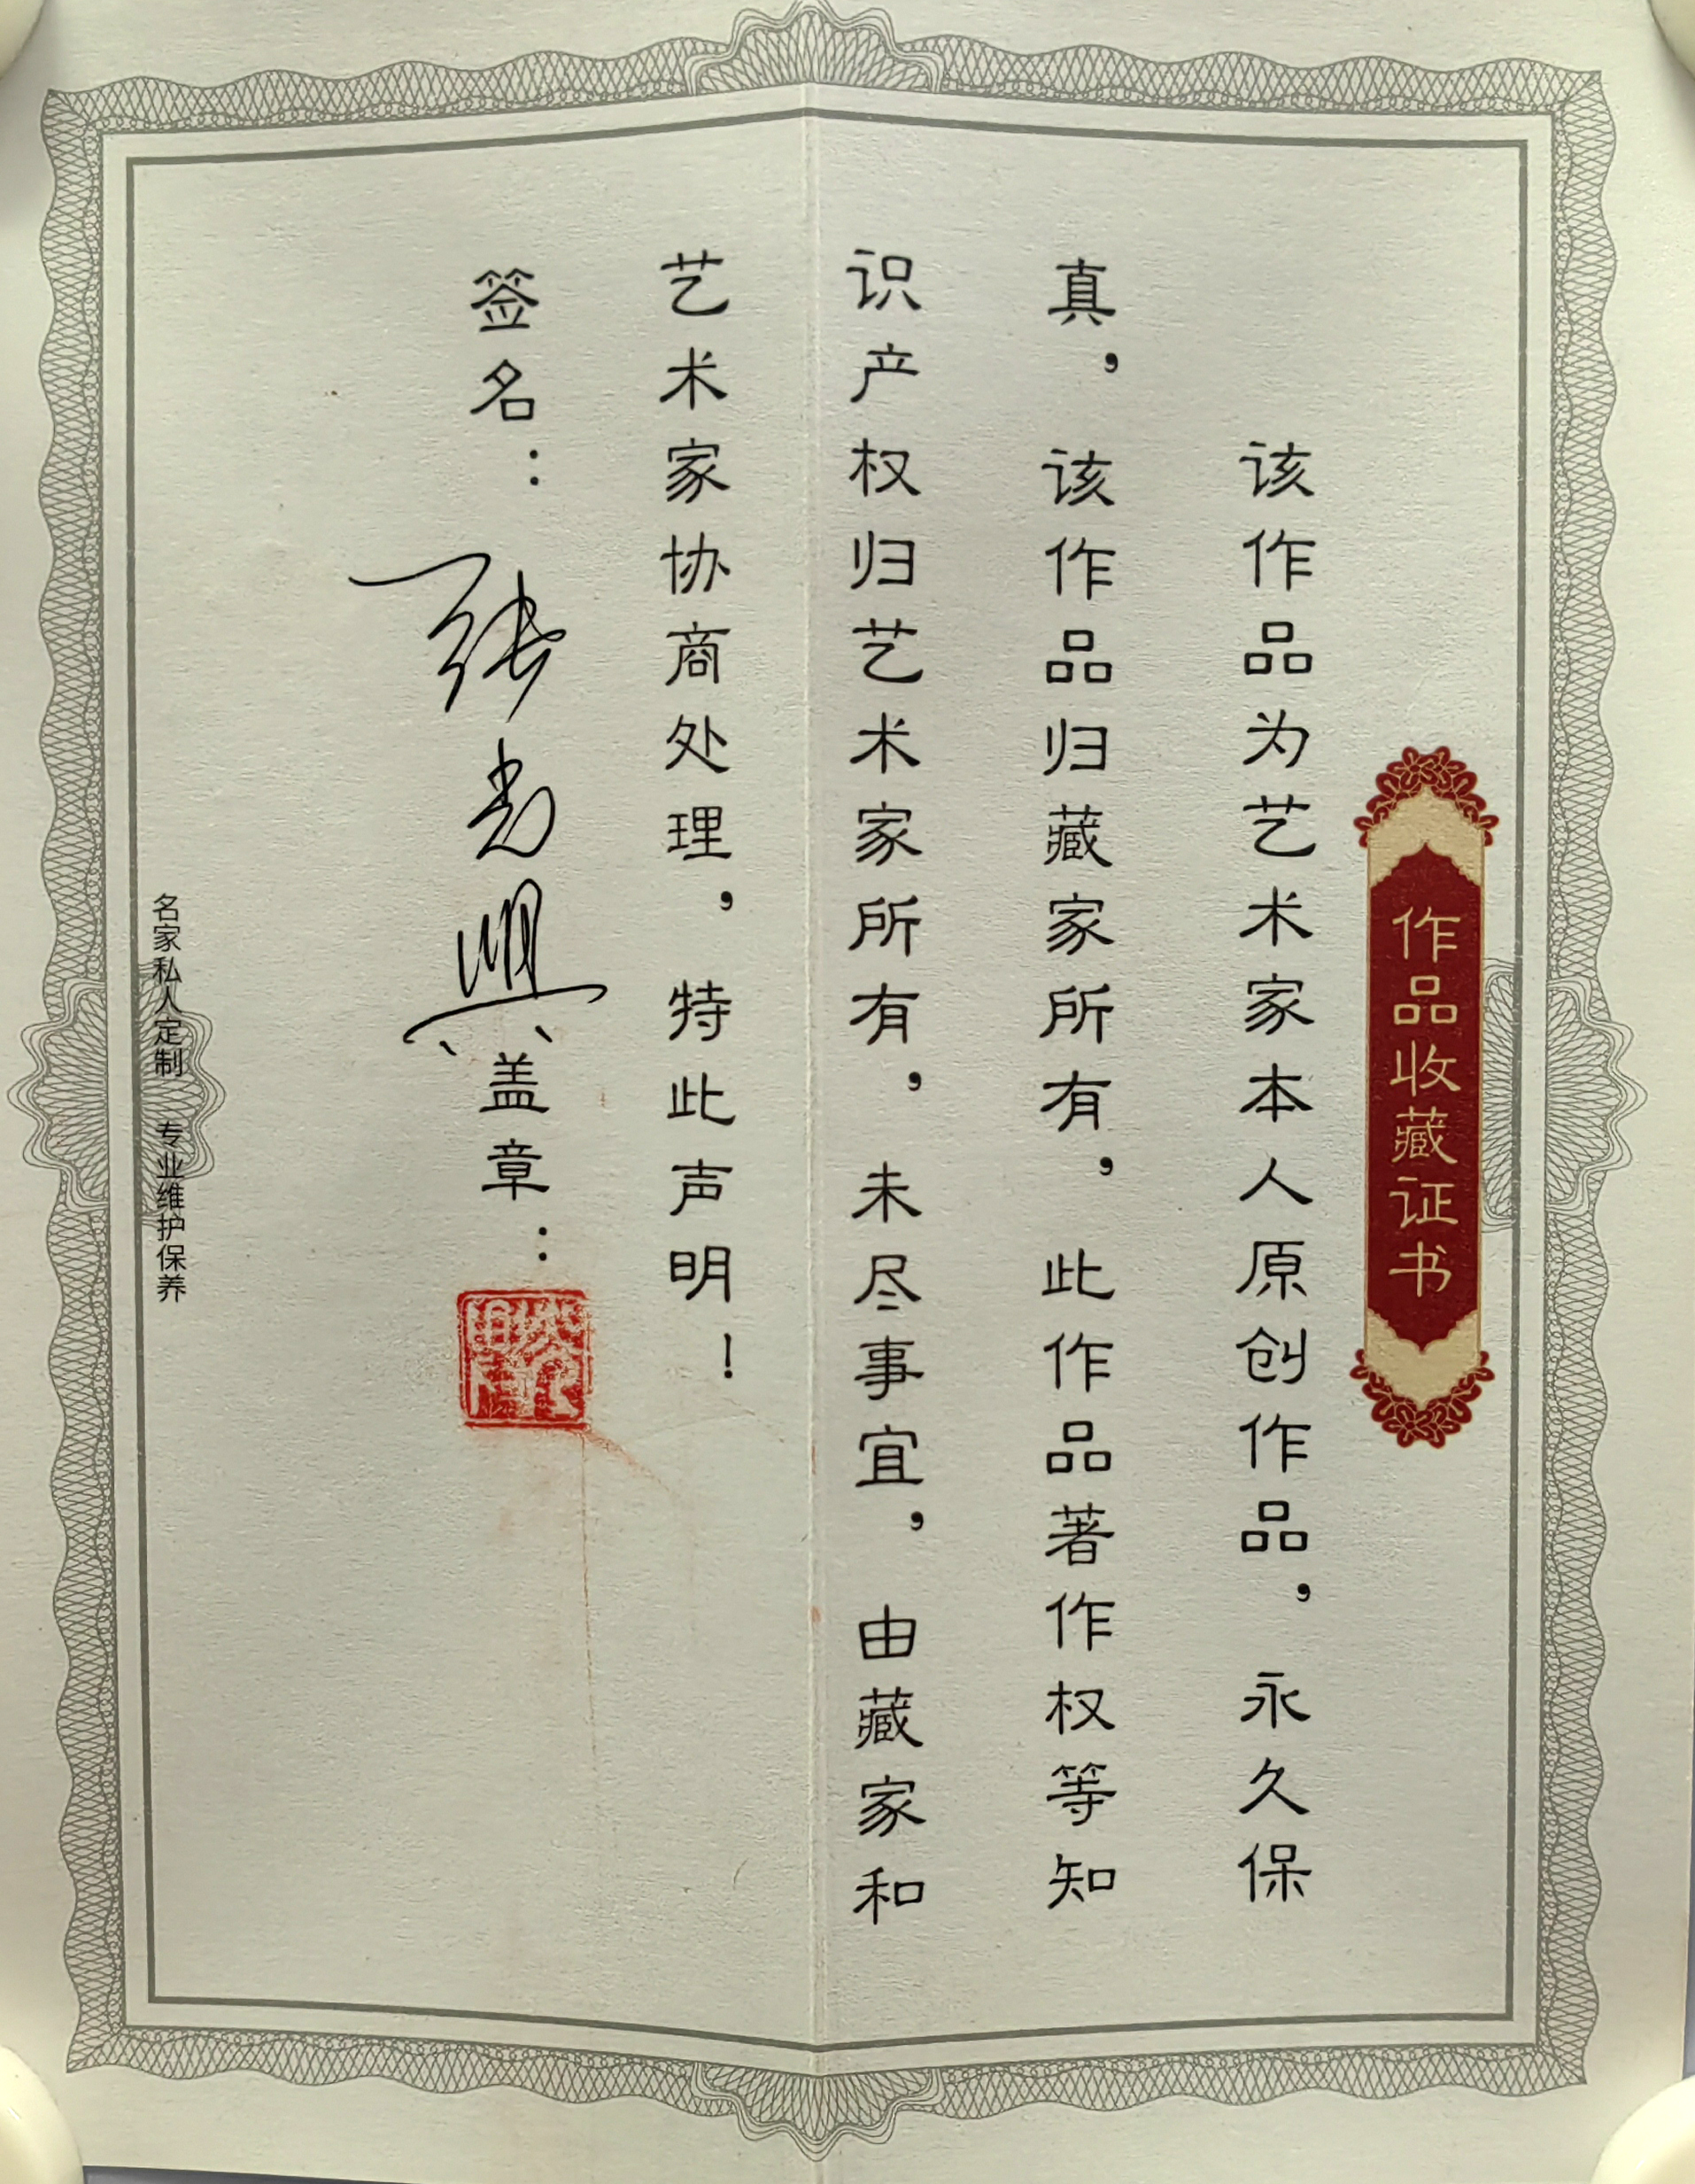 作品收藏证书
该作品为艺术家本人原创作品，永久保
真，该作品归藏家所有，此作品著作权等知
识产权归艺术家所有，未尽事宜，由藏家和
艺术家协商处理，特此声明！
签名：张 盖章：
名家私人定制 专业维护保养